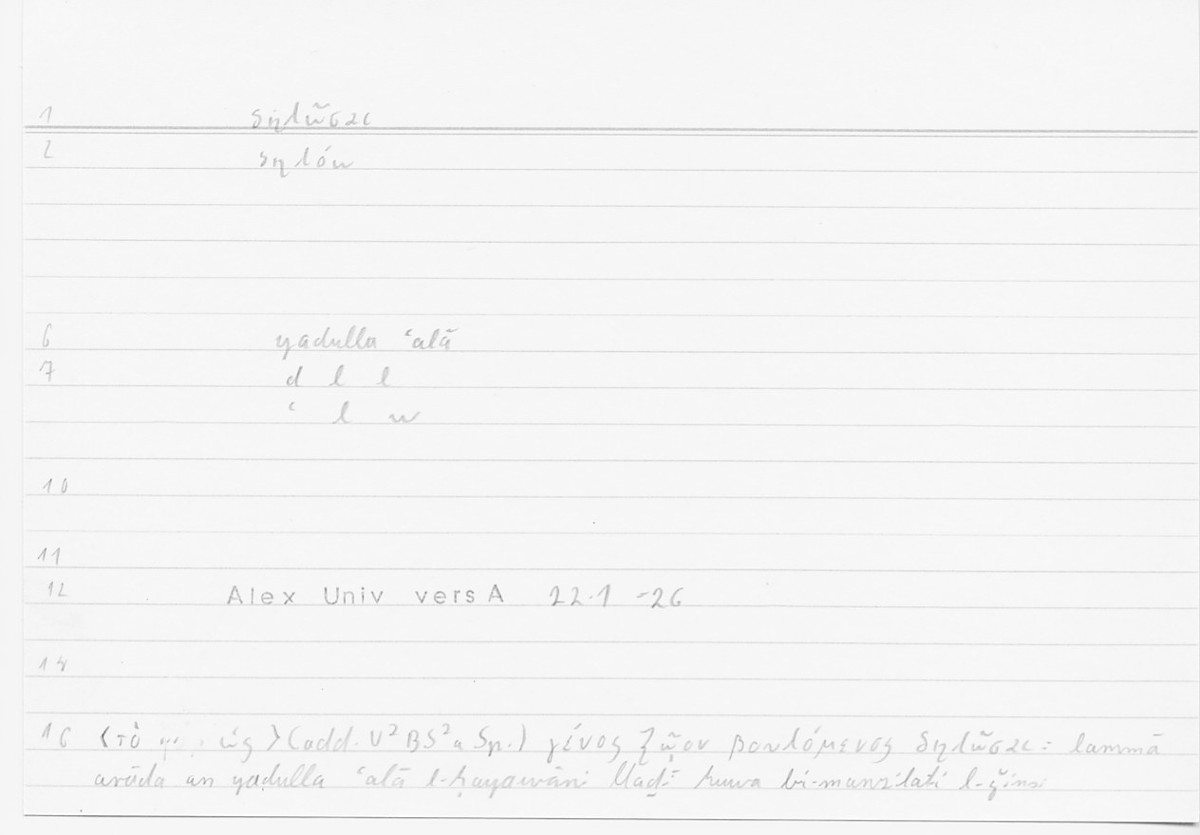 1 δηλῶσαι
2 δηλόω
6 yadulla ʿalā
7 d l l
ʿ l w
10
11
12 Alex Univ vers A 22.1 -26
14
16 〈τὸ ὡς〉 (add. V²BS²a Sp.) γένος ζῷον βουλόμενος δηλῶσαι: lammā
arāda an yadulla ʿalā l-ḥayawāni llaḏī huwa bi-manzilati l-ǧinsi